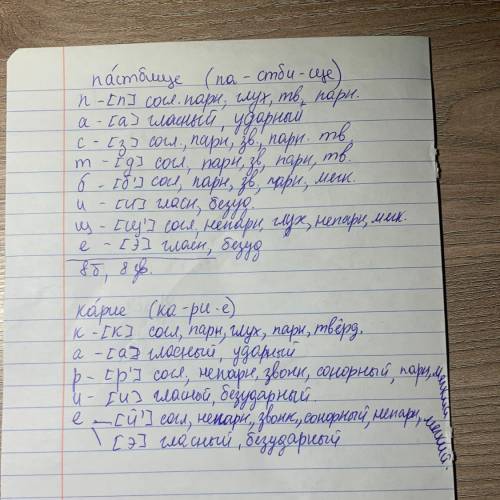 па́стбище (па-стби-ще)
п-[п] согл. парн, глух, тв, парн.
а-[а] гласный, ударный
с-[з] согл., парн, зв, парн. тв.
т-[д] согл, парн, зв, парн, тв.
б-[б'] согл, парн, зв, парн, мягк.
и-[и] гласн, безуд.
щ-[щ'] согл, непарн, глух, непарн, мягк.
е-[э] гласн, безуд
8б, 8зв.
ка́рие (ка-ри-е)
к-[к] согл, парн, глух, парн, твёрд.
а-[а] гласный, ударный
р-[р'] согл, непарн, звонк, сонорный, парн, мягкий
и-[и] гласный, безударный.
е [й'] согл, непарн, звонк, сонорный, непарн, мягкий.
[э] гласный, безударный